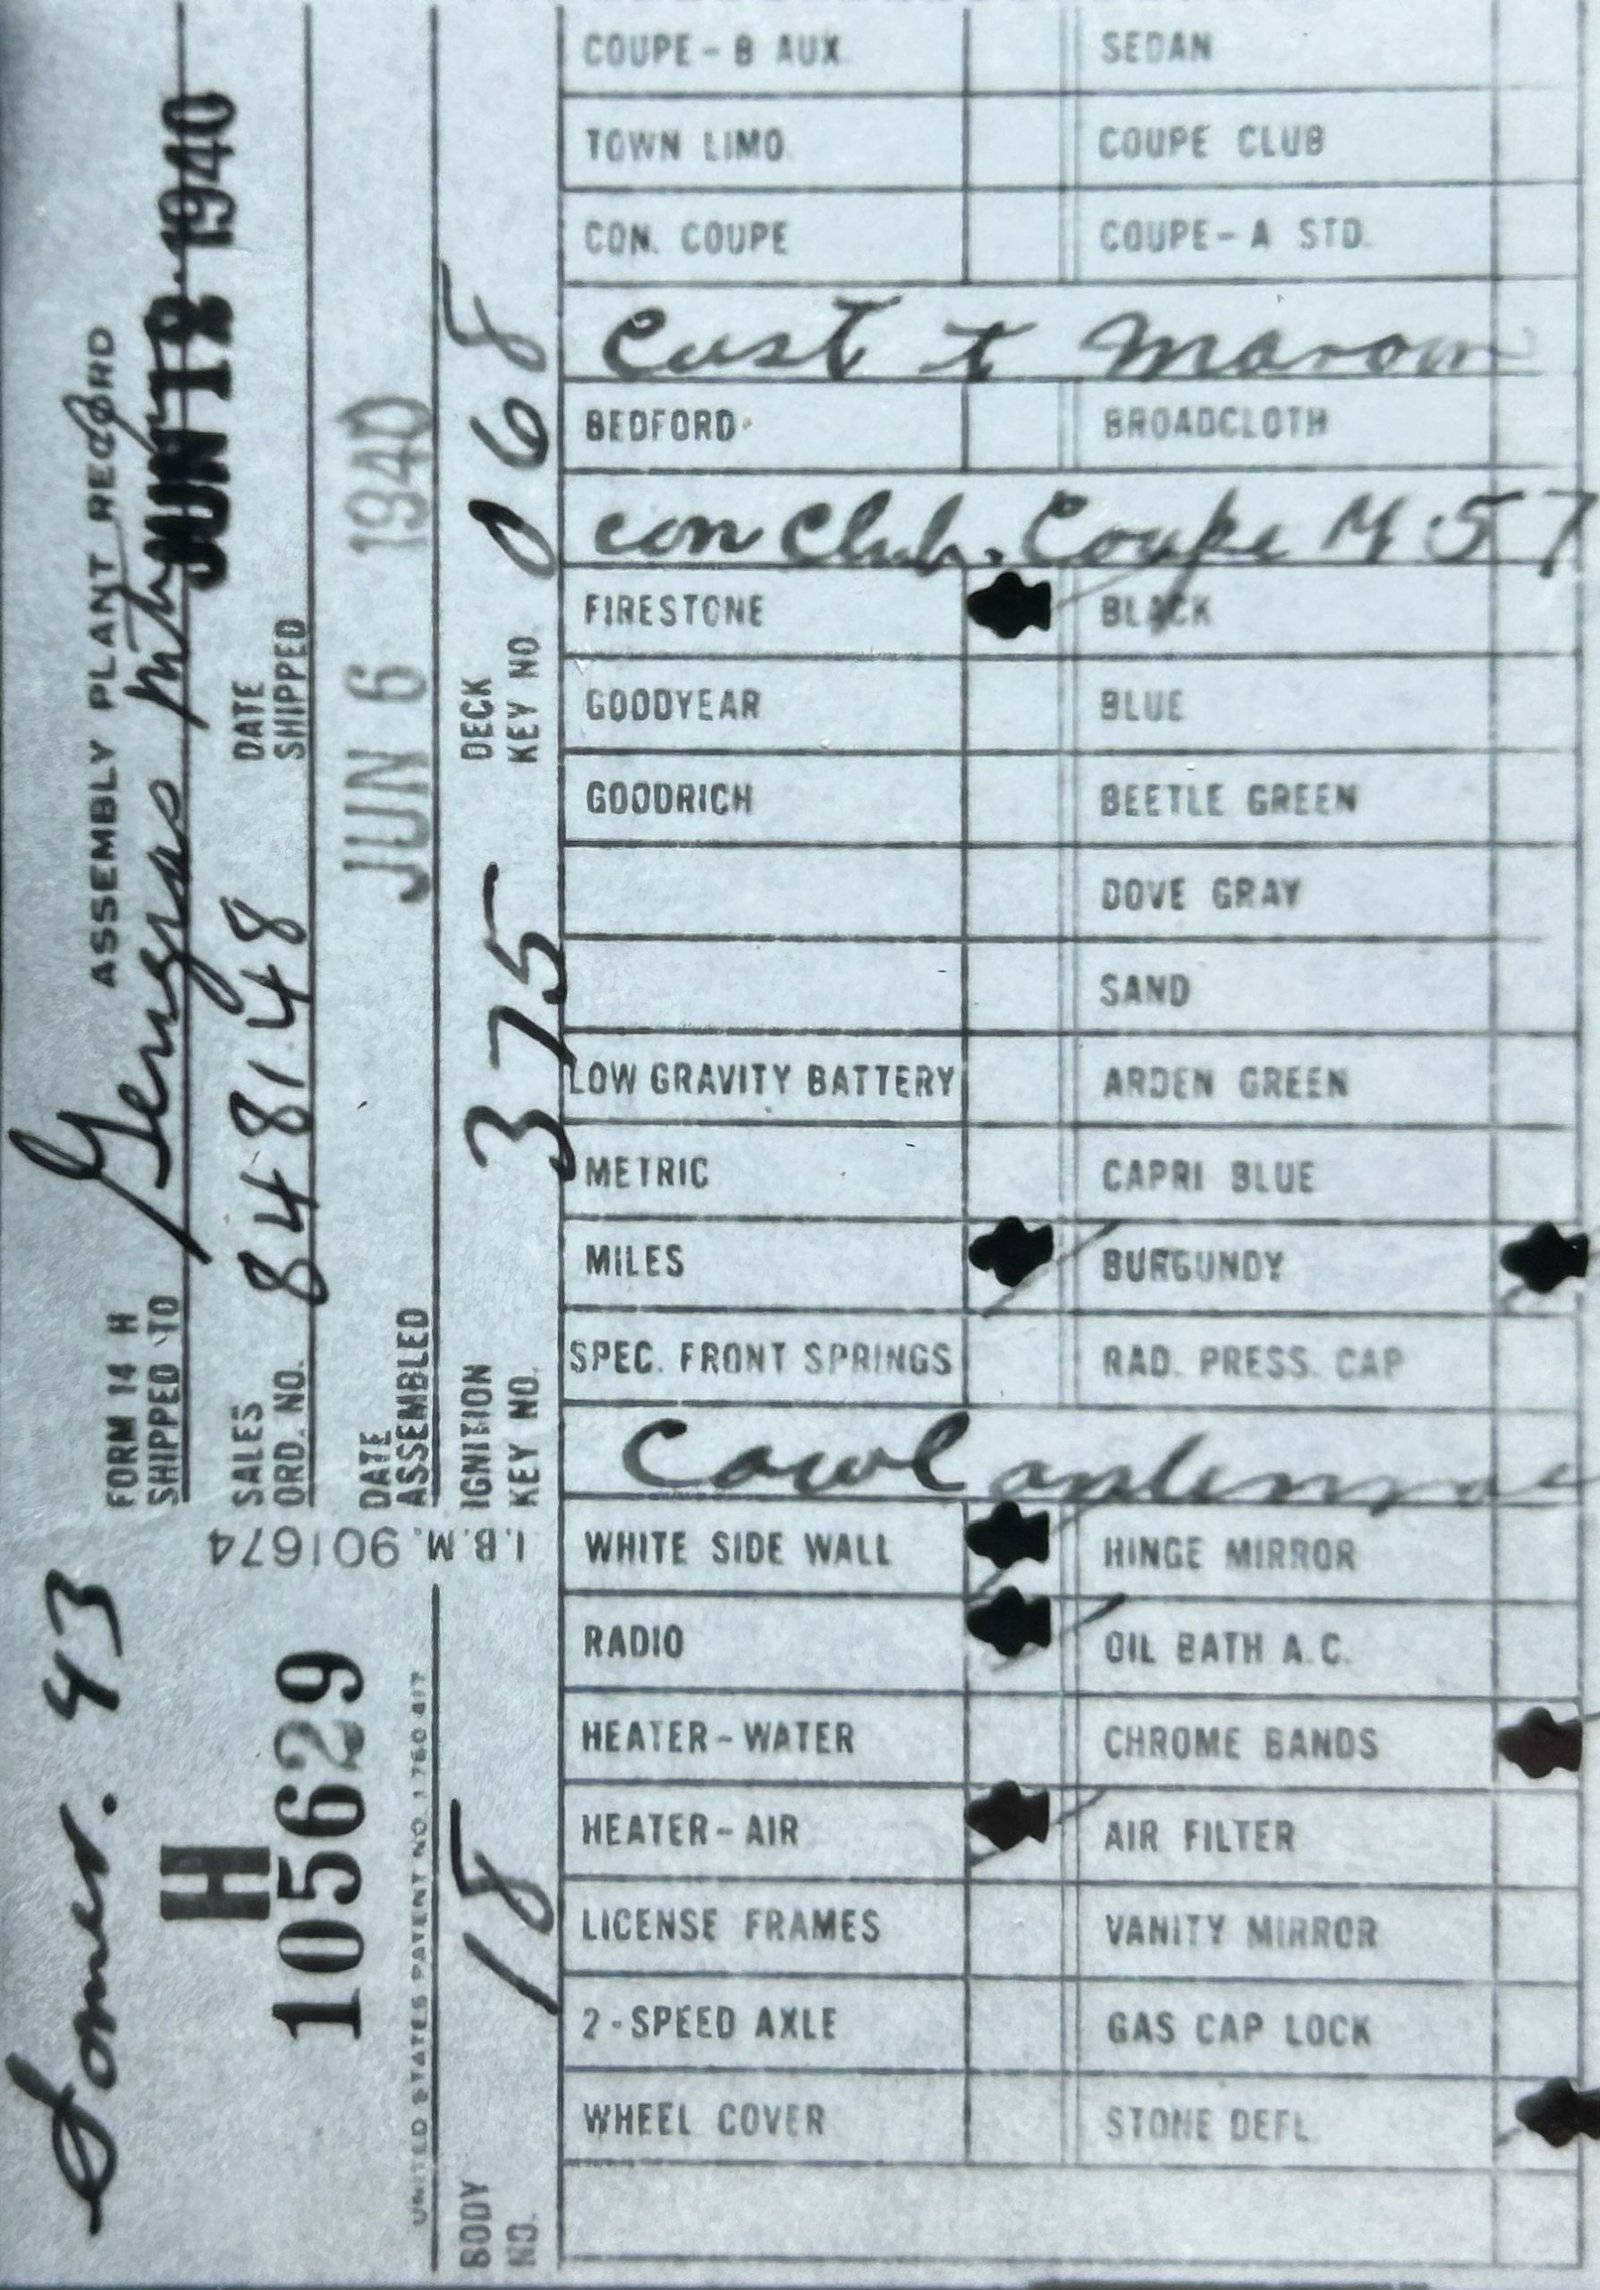 FORM 14 H ASSEMBLY PLANT RECORD
SHIPPED TO
JUN 12 1940
SALES ORD. NO. 848148 DATE SHIPPED
DATE ASSEMBLED JUN 6 1940
IGNITION KEY NO. 375 DECK KEY NO 068
I.B.M. 901674
43
H
105629
UNITED STATES PATENT NO. 1 760 417
BODY NO. 18
COUPE - B AUX. SEDAN
TOWN LIMO. COUPE CLUB
CON. COUPE COUPE - A STD.
Cust t Maroon
BEDFORD BROADCLOTH
con Club. Coupe M 57
FIRESTONE BLACK
GOODYEAR BLUE
GOODRICH BEETLE GREEN
DOVE GRAY
SAND
LOW GRAVITY BATTERY ARDEN GREEN
METRIC CAPRI BLUE
MILES BURGUNDY
SPEC. FRONT SPRINGS RAD. PRESS. CAP
Cowl antennae
WHITE SIDE WALL HINGE MIRROR
RADIO OIL BATH A.C.
HEATER - WATER CHROME BANDS
HEATER - AIR AIR FILTER
LICENSE FRAMES VANITY MIRROR
2 - SPEED AXLE GAS CAP LOCK
WHEEL COVER STONE DEFL.